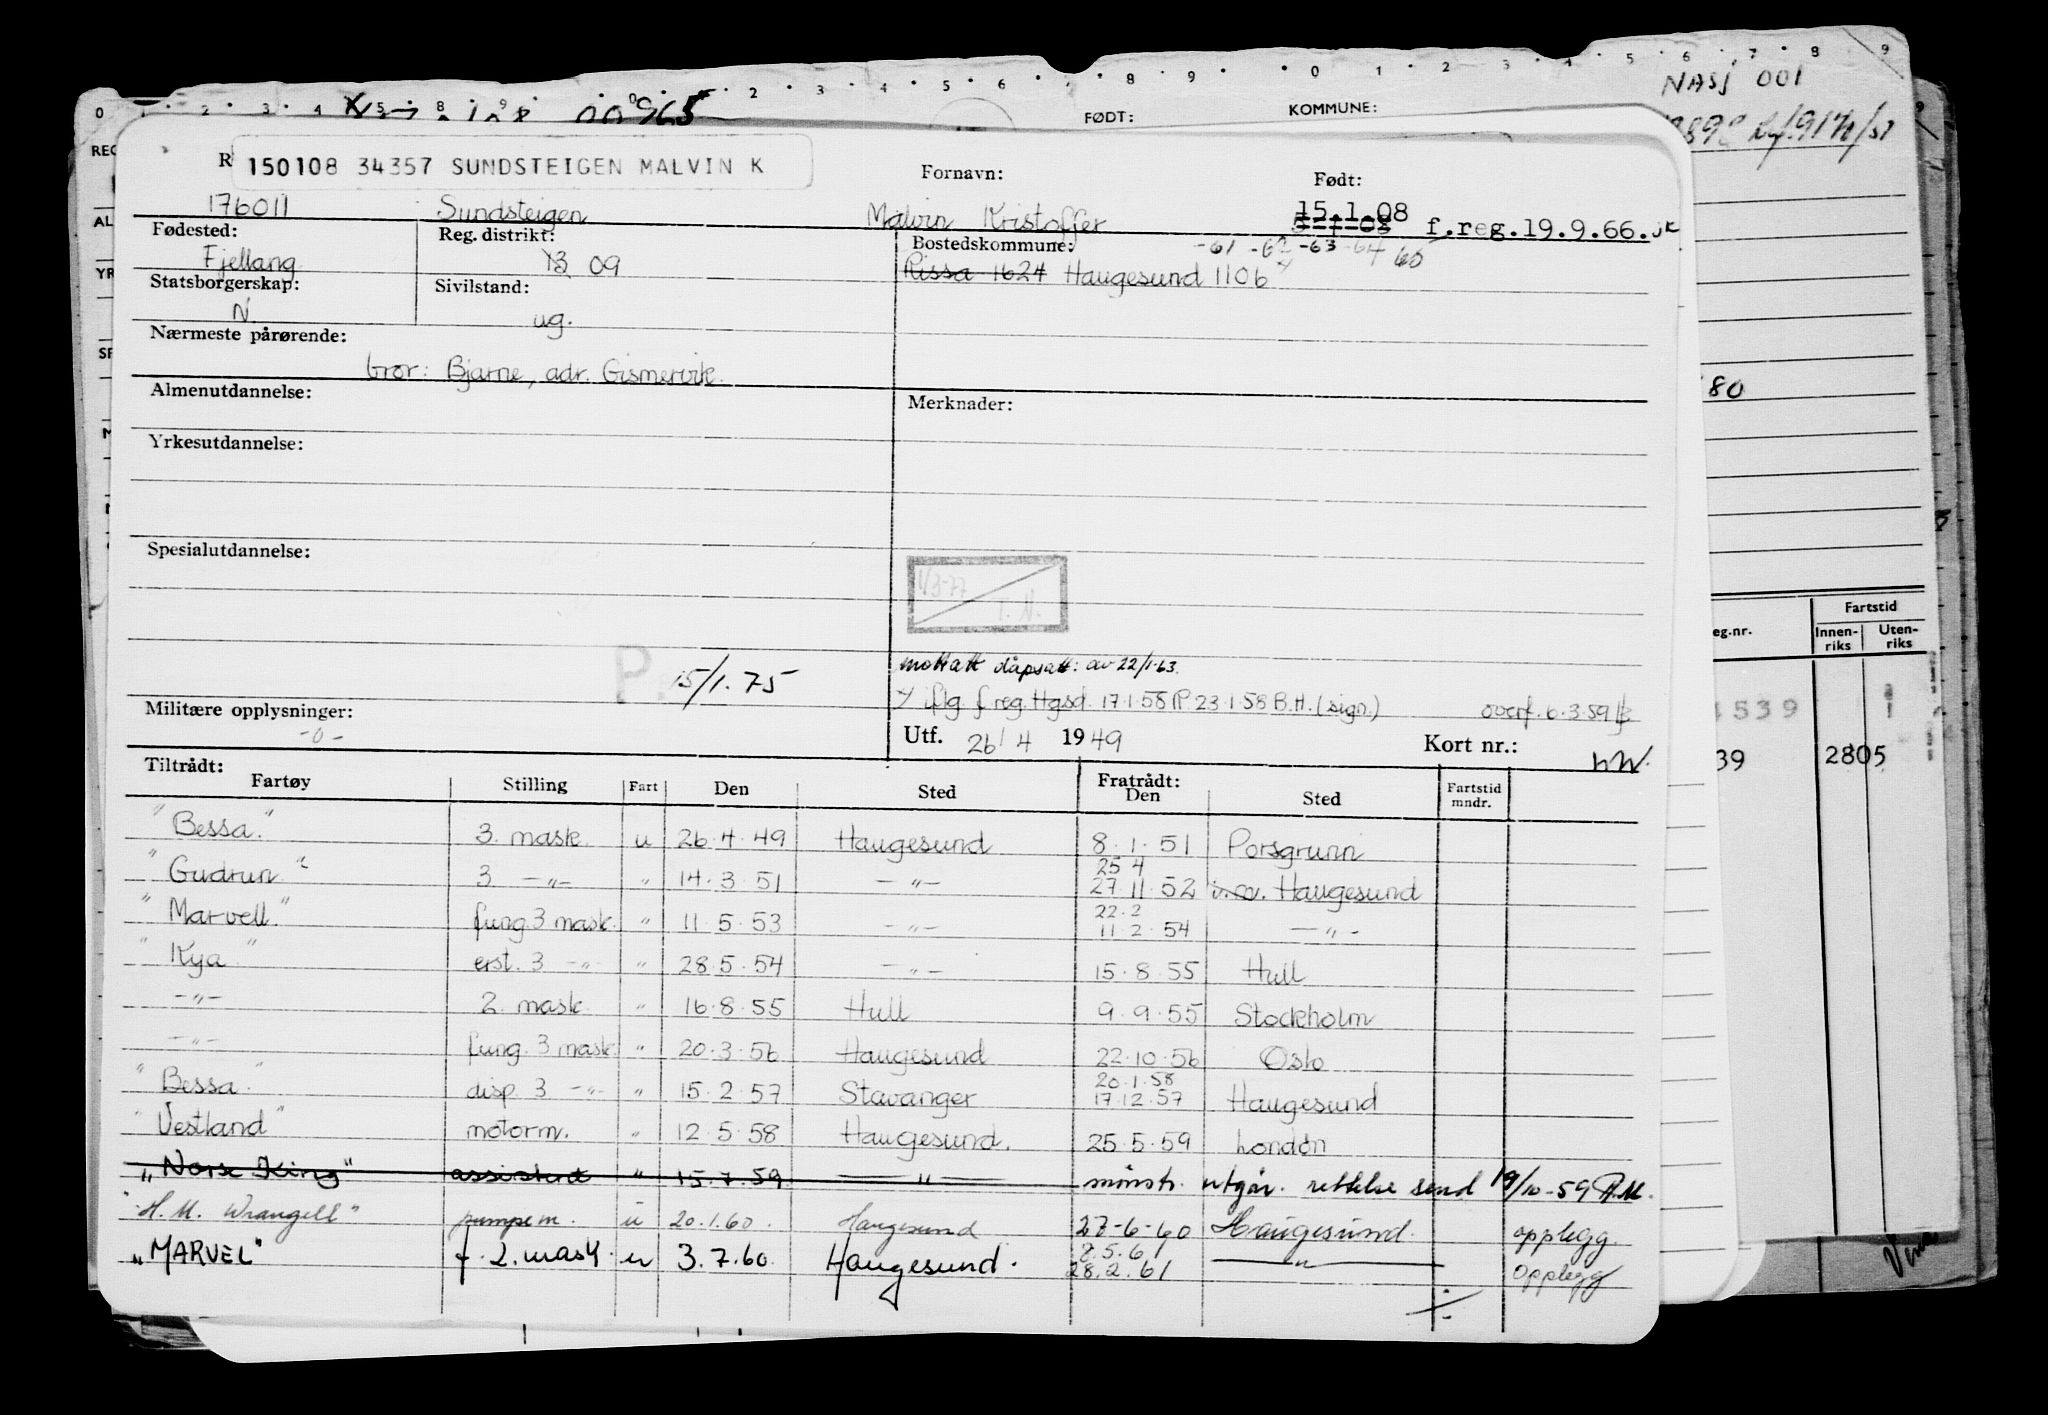 NASJ 001
0 2 3 4 5 8 9 0 2 3 4 5 6 7 8 9 0 1 2 3 4 5 6 7 8 9
00965
FØDT: KOMMUNE:
R 150108 34357 SUNDSTEIGEN MALVIN K Fornavn: Født:
176011 Sundsteigen Malvin Kristoffer 15.1.08 5-1-08 f.reg.19.9.66.
Fødested: Reg. distrikt: Bostedskommune: -61 -62 -63 -64 65
Fjellang 13 09 Rissa 1624 Haugesund 1106
Statsborgerskap: Sivilstand:
N. ug.
Nærmeste pårørende:
bror: Bjarne, adr. Gismervik.
Almenutdannelse: Merknader:
80
Yrkesutdannelse:
Spesialutdannelse:
1/3-77
T. N.
Fartstid
eg.nr. Innen-riks Uten-riks
P. 15/1.75
mottatt dåpsatt: av 22/1-63.
iflg. f reg. Hgsd. 17.1.58 23.1.58 B.H. (sign.) overf. 6.3.59
4539
Militære opplysninger:
-0-
Utf. 26/4 1949 Kort nr.:
39 2805
Tiltrådt: Fratrådt:
Fartøy Stilling Fart Den Sted Den Sted Fartstid mndr.
"Bessa." 3. mask. u 26.4.49 Haugesund 8.1.51 Porsgrunn
25 4
"Gudrun" 3 -"- " 14.3.51 -"- 27.11.52 Haugesund
22.2
"Marvell" fung. 3 mask. " 11.5.53 -"- 11.2.54 -"-
"Kya" erst. 3 -"- " 28.5.54 -"- 15.8.55 Hull
-"- 2. mask. " 16.8.55 Hull 9.9.55 Stockholm
-"- fung. 3 mask. " 20.3.56 Haugesund 22.10.56 Oslo
20.1.58
"Bessa" disp. 3 -"- " 15.2.57 Stavanger 17.12.57 Haugesund
"Vestland" motorm. " 12.5.58 Haugesund. 25.5.59 London
"Norse King" assistent " 15.7.59 -"- mønstr. utgår. rettelse send 19/10-59
"H.M. Wrangell" pumpem. u 20.1.60. Haugesund 27-6-60 Haugesund. opplegg.
8.5.61
"MARVEL" f. 2. mask u 3.7.60. Haugesund. 28.2.61 -"- Opplegg